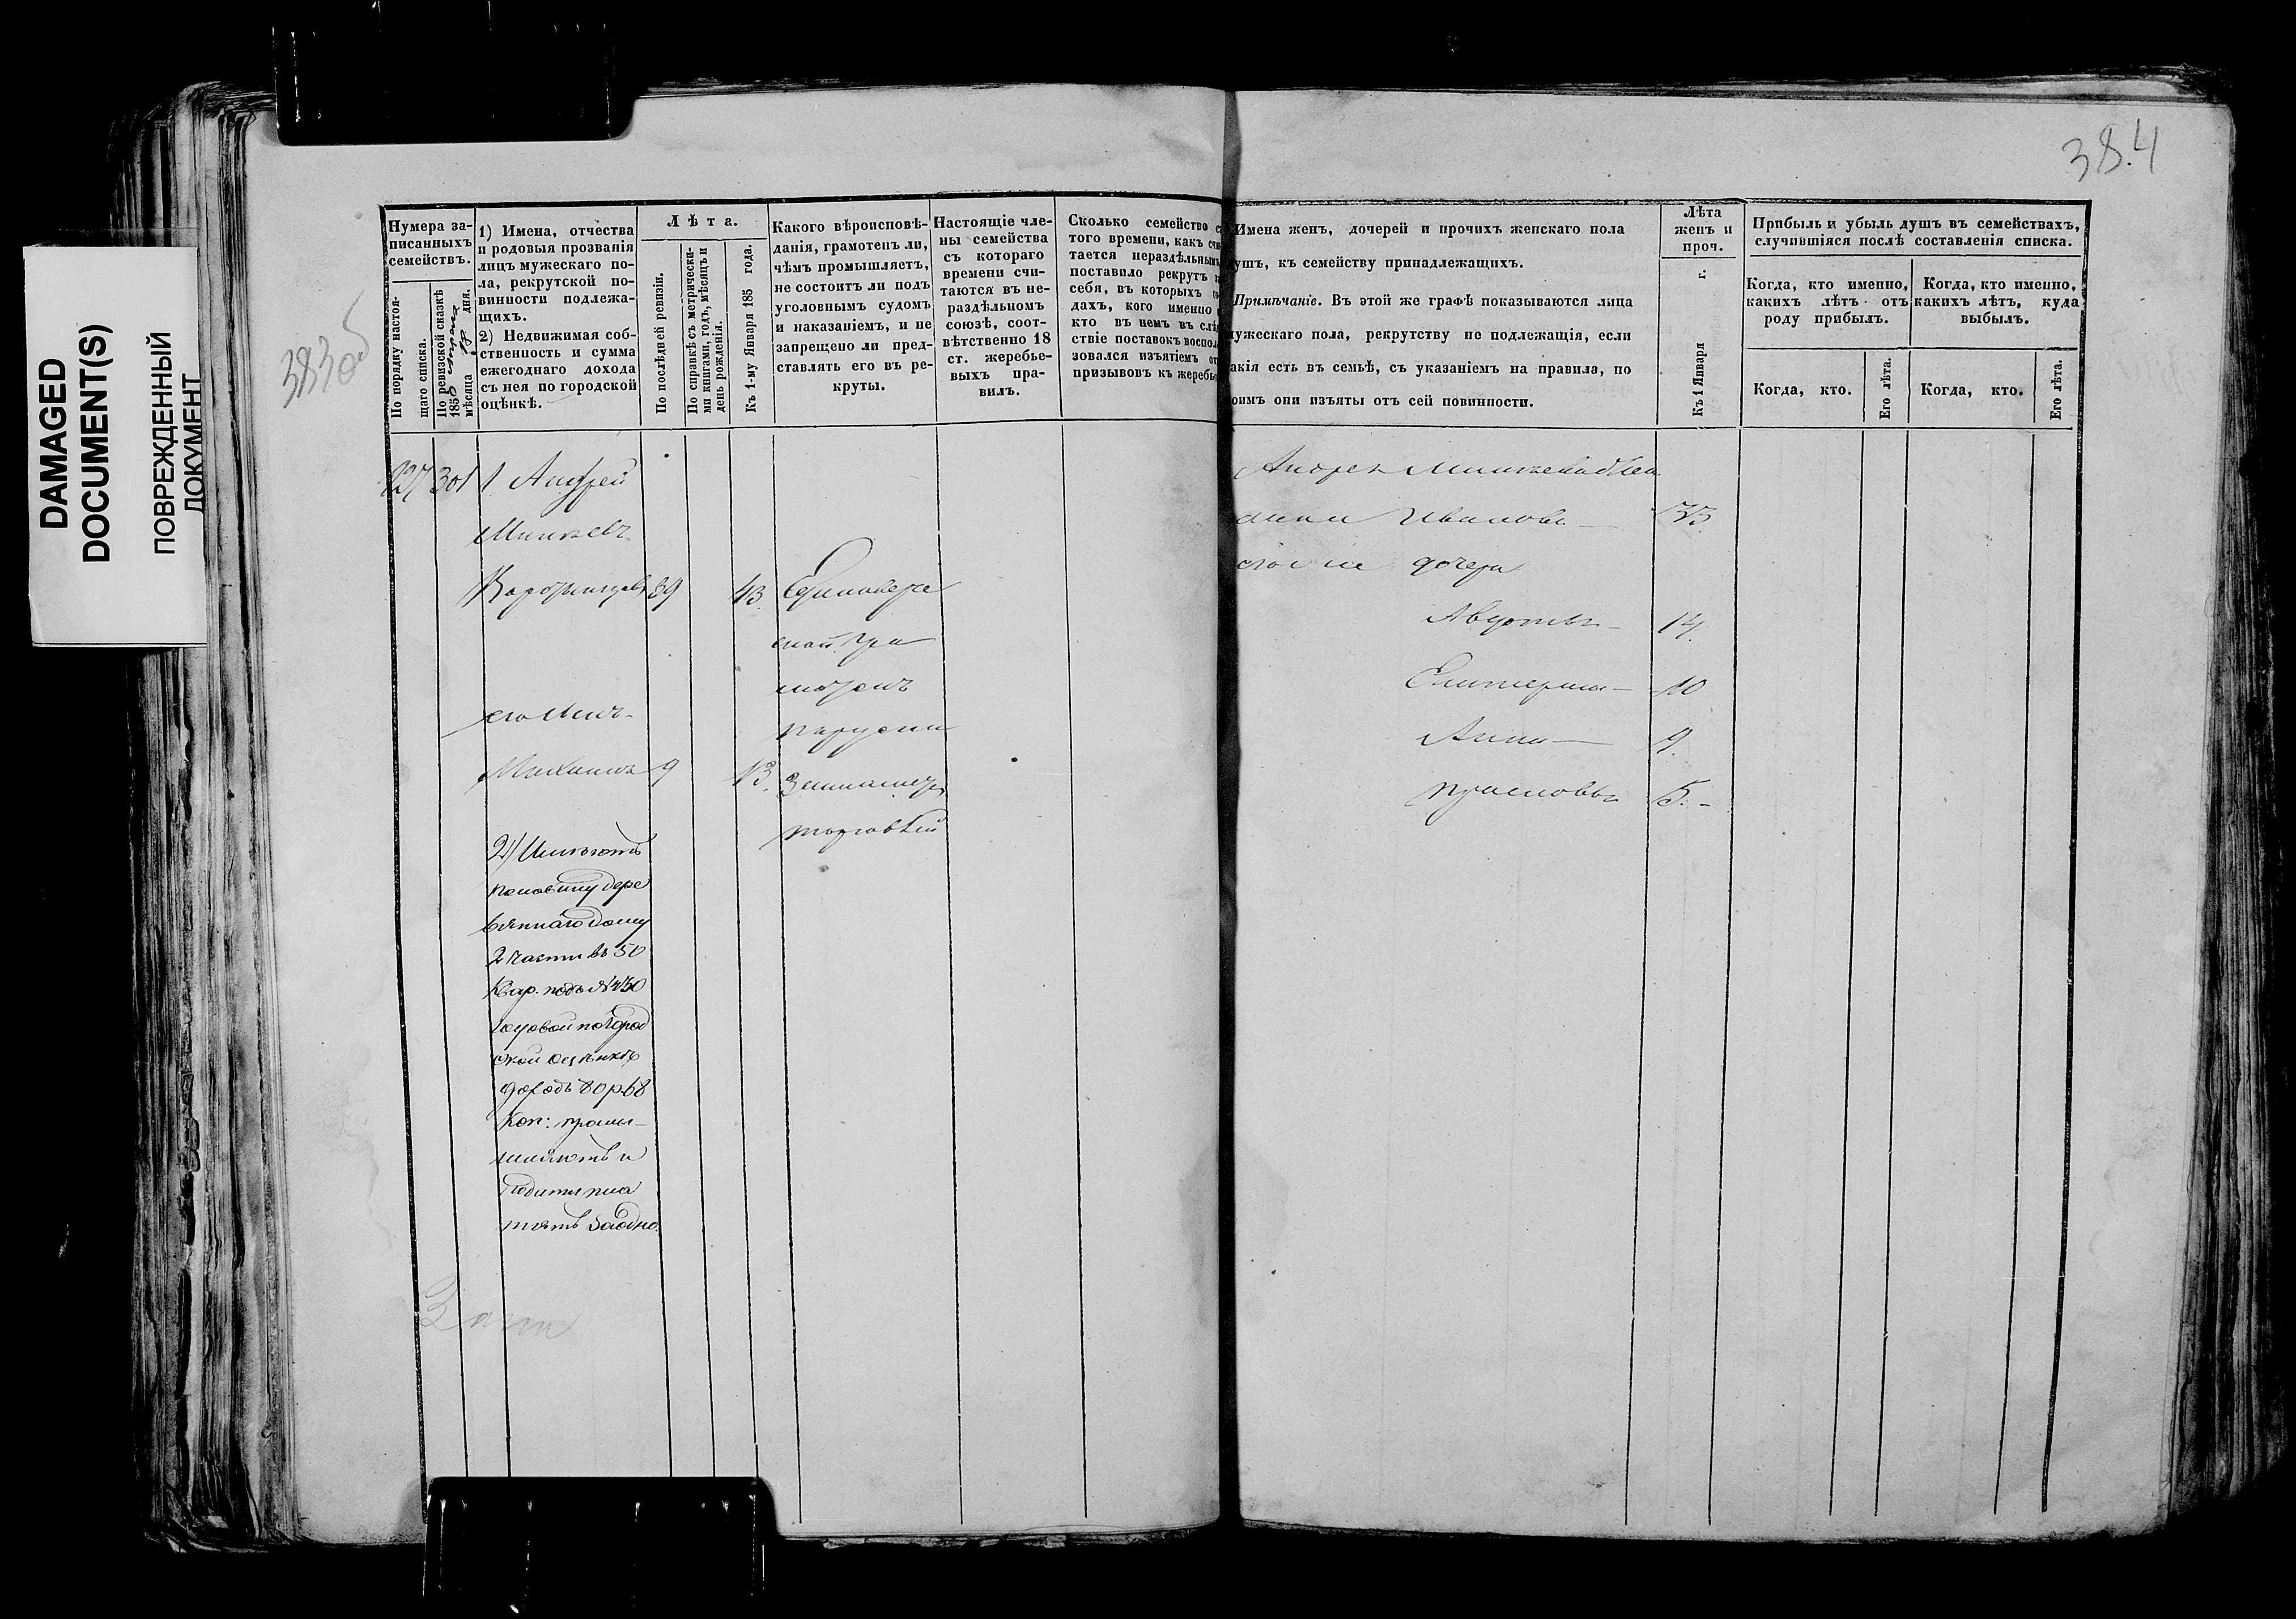 384
383об
DAMAGED
DOCUMENT(S)
ПОВРЕЖДЕННЫЙ
ДОКУМЕНТ
Нумера за-
писанныхъ
семействъ.
По порядку настоя-
щаго списка.
По ревизской сказкѣ
1850
мѣсяца 18 дня.
1) Имена, отчества
и родовыя прозванія
лицъ мужескаго по-
ла, рекрутской по-
винности подлежа-
щихъ.
2) Недвижимая соб-
ственность и сумма
ежегоднаго дохода
съ нея по городской
оцѣнкѣ.
Лѣта.
По послѣдней ревизіи.
По справкѣ съ метрически-
ми книгами, годъ, мѣсяцъ и
день рожденія.
Къ 1-му Января 185 года.
Какого вѣроисповѣ-
данія, грамотенъ ли,
чѣмъ промышляетъ,
не состоитъ ли подъ
уголовнымъ судомъ
и наказаніемъ, и не
запрещено ли пред-
ставлять его въ ре-
круты.
Настоящіе чле-
ны семейства
съ котораго
времени счи-
таются въ не-
раздѣльномъ
союзѣ, соот-
вѣтственно 18
ст. жеребье-
выхъ пра-
вилъ.
Сколько семейство с
того времени, какъ счи
тается нераздѣльнымъ
поставило рекрутъ за
себя, въ которыхъ го
дахъ, кого именно и
кто въ немъ въ слѣд
ствіе поставокъ воспол
зовался изъятіемъ от
призывовъ къ жеребью
Имена женъ, дочерей и прочихъ женскаго пола
душъ, къ семейству принадлежащихъ.
Примѣчаніе. Въ этой же графѣ показываются лица
мужескаго пола, рекрутству не подлежащія, если
такія есть въ семьѣ, съ указаніемъ на правила, по
коимъ они изъяты отъ сей повинности.
Лѣта
женъ и
проч.
Къ 1 Января г.
Прибыль и убыль душъ въ семействахъ,
случившіяся послѣ составленія списка.
Когда, кто именно,
какихъ лѣтъ отъ
роду прибылъ.
Когда, кто именно,
какихъ лѣтъ, куда
выбылъ.
Когда, кто.
Его лѣта.
Когда, кто.
Его лѣта.
227 301 1 Андрей
39 43 Единовѣрче
ской гра
мотенъ
его сынъ
Михаилъ 9 13
торговлей
2) Имѣютъ
половину дере
вяннаго дому
2 части въ 50
Квар. подъ №
годовой по город
ской оцѣнкѣ
доходъ 80 р 68
Коп: промы-
шляютъ и
подати пла
тятъ заодно.
Андрея жена
Анна Иванова 33
его же дочери
Авдотья 14
Екатерина 10
Анна 9.
Прасковья 5.